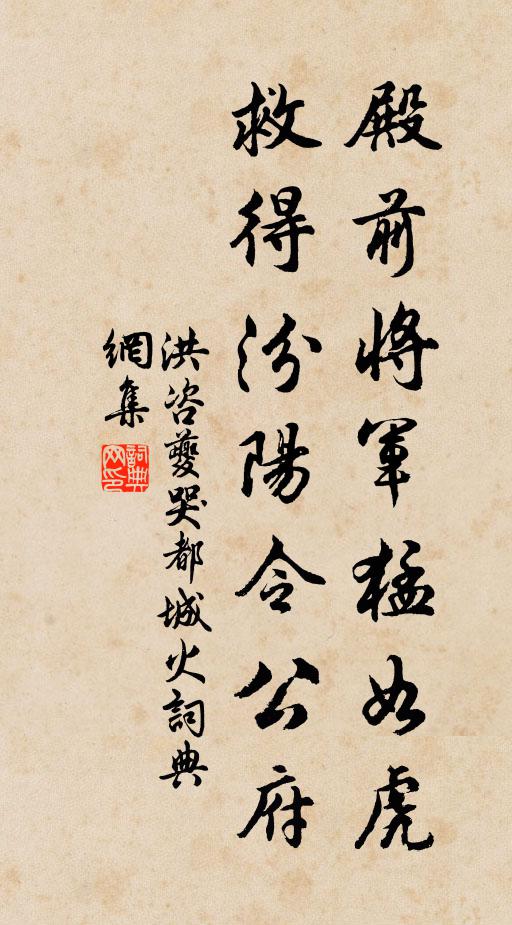 殿前將軍猛如虎
救得汾陽令公府
洪咨夔哭都城火詞典
網集
詞典
网印